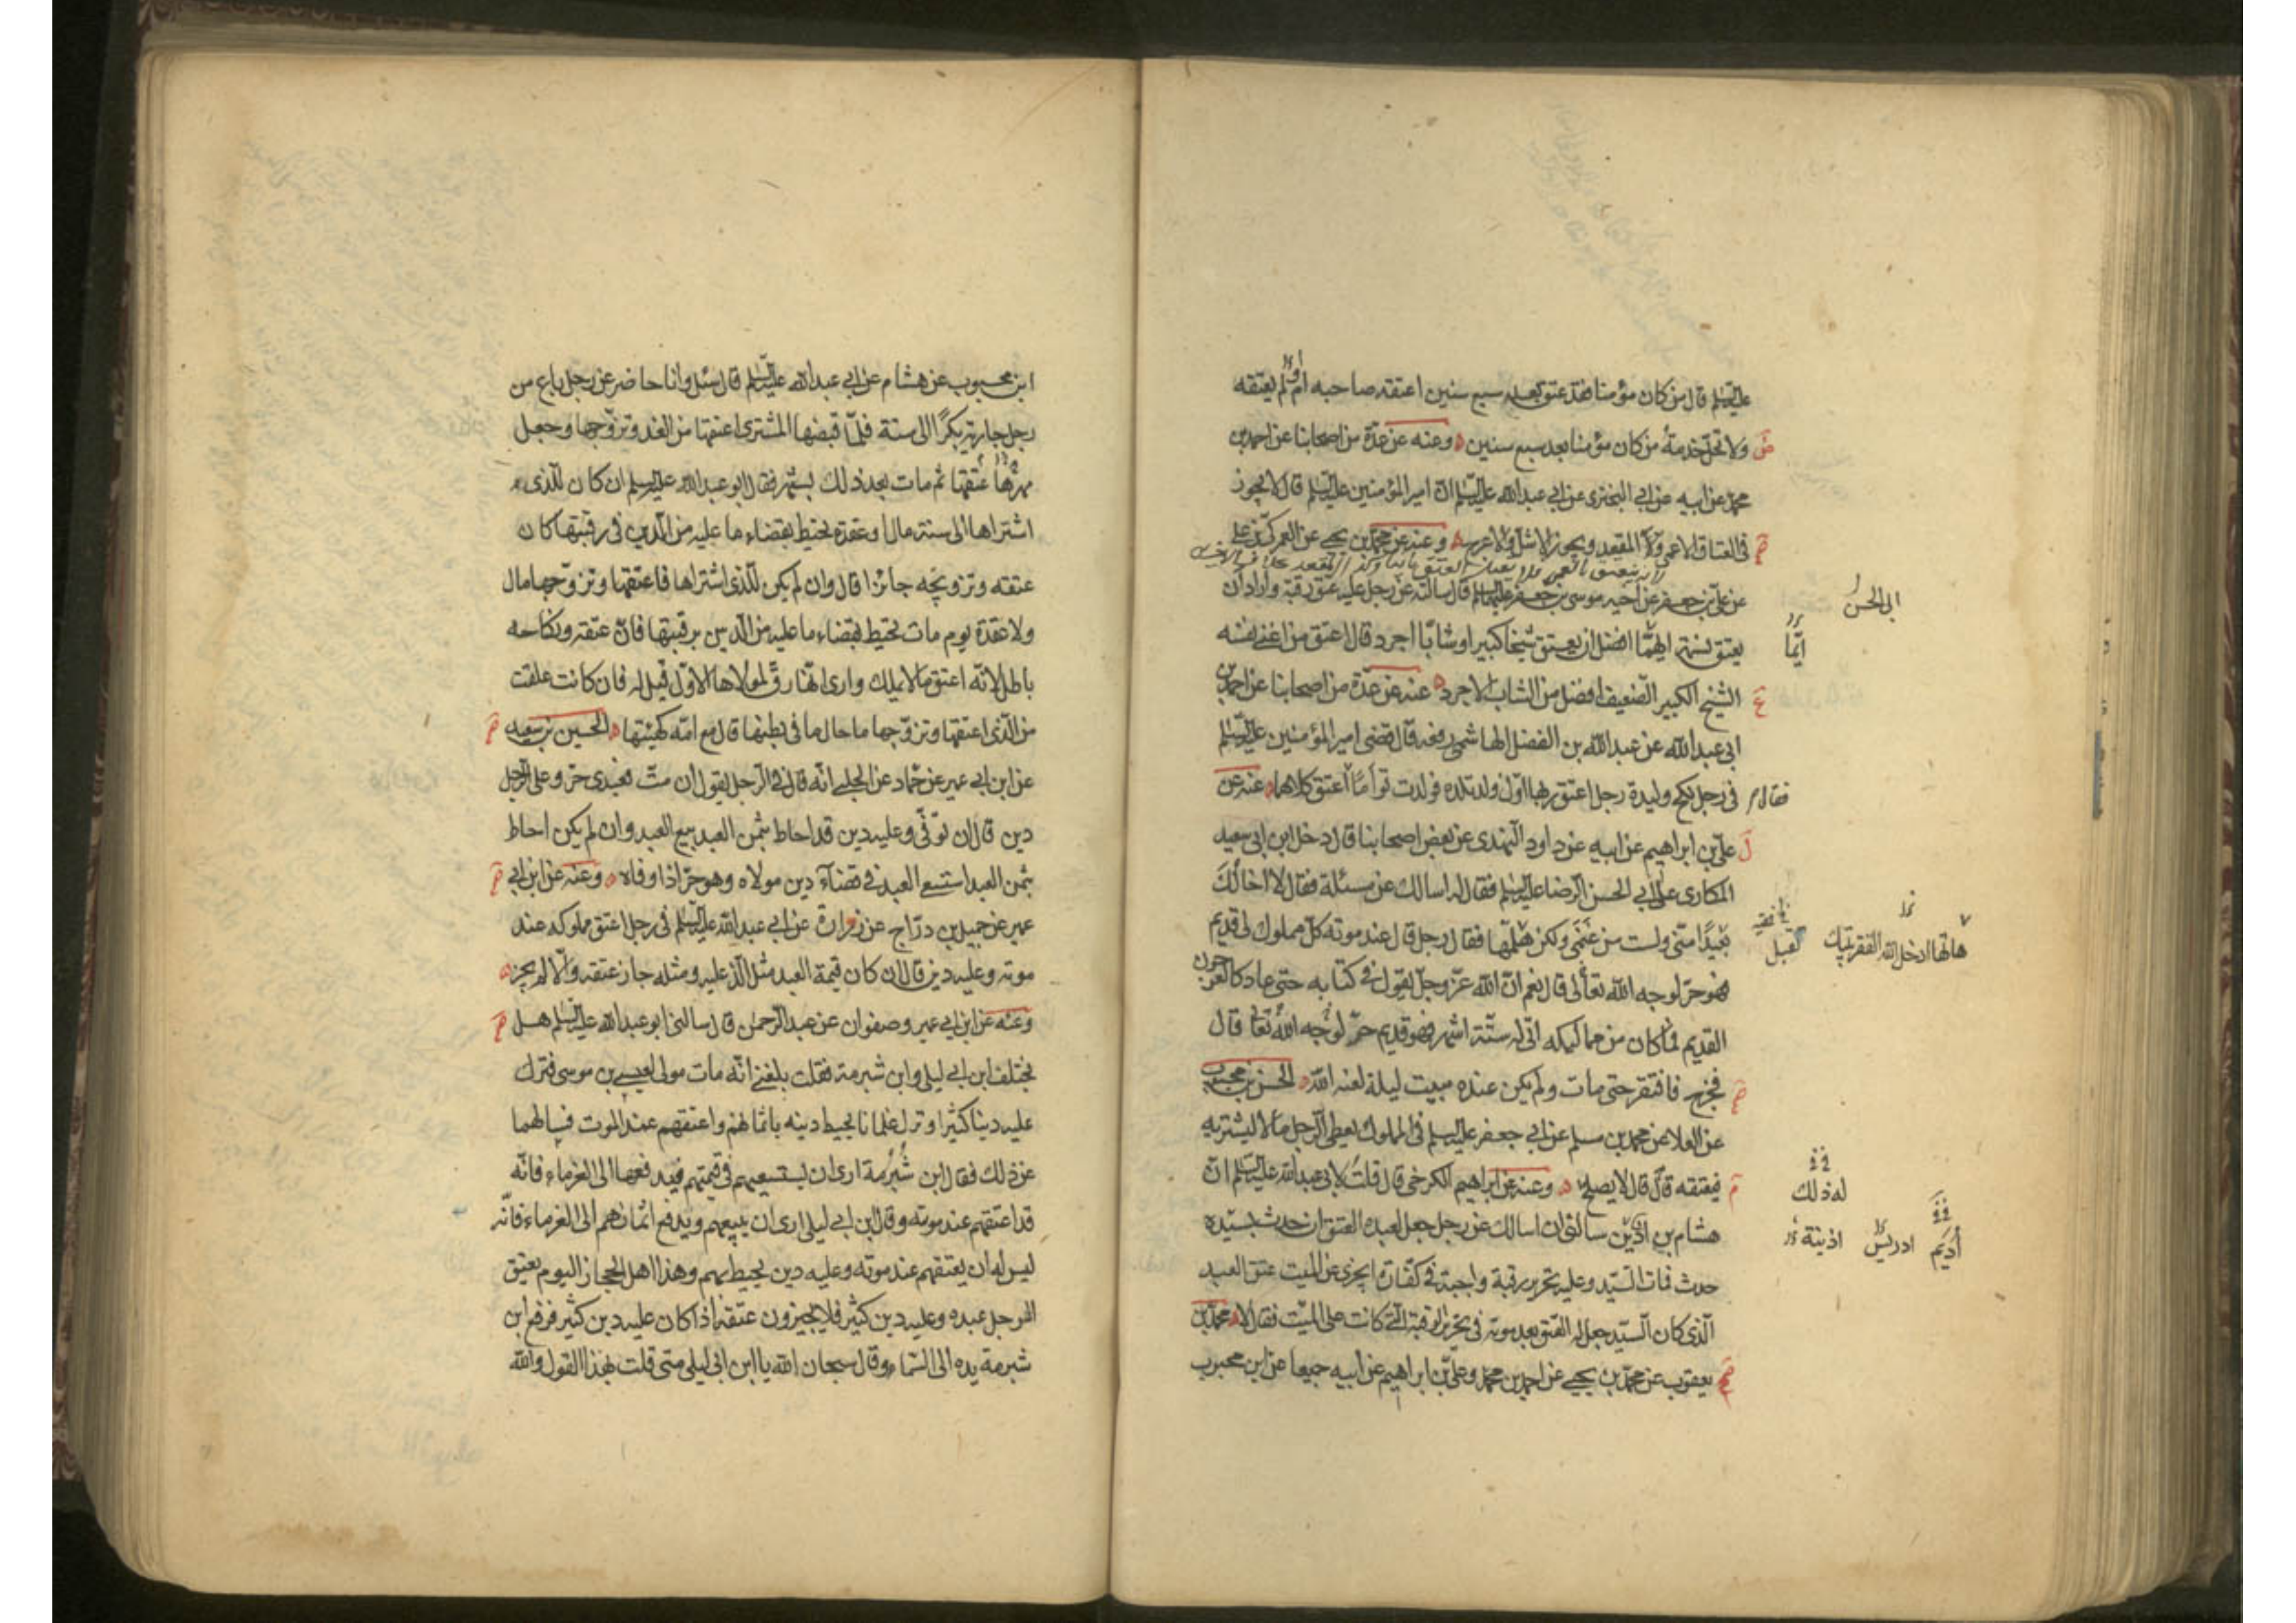 عليه السلم قال من كان مؤمنا فقد عتق بعد سبع سنين اعتقه صاحبه ام لم يعتقه
ولا تحل خدمة من كان مؤمنا بعد سبع سنين وعنه عن عدة من اصحابنا عن احمد بن
محمد عن ابيه عن ابي البختري عن ابي عبد الله عليه السلم ان امير المؤمنين عليه السلم قال لا يجوز
في العتاق الاعمى ولا المقعد ويجوز الاشل والاعرج وعنه عن محمد بن يحيى عن العمركي عن علي
عن علي بن جعفر عن اخيه موسى بن جعفر عليهما السلم قال سالته عن رجل عليه عتق رقبة واراد ان
ابي الحسن
يعتق نسمة ايهما افضل ان يعتق شيخا كبيرا او شابا اجرد قال اعتق من اغنى نفسه
ايما
الشيخ الكبير الضعيف افضل من الشاب الاجرد عنه عن عدة من اصحابنا عن احمد بن
ابي عبد الله عن عبد الله بن الفضل الهاشمي رفعه قال قضى امير المؤمنين عليه السلم
في رجل نكح وليدة رجل اعتق ربها اول ولد تلده فولدت توأما اعتق كلاهما عنه عن
فقال
علي بن ابراهيم عن ابيه عن داود النهدي عن بعض اصحابنا قال دخل ابن ابي سعيد
المكاري على ابي الحسن الرضا عليه السلم فقال له اسالك عن مسئلة فقال لا اخالك
تقبل مني ولست من غنمي ولكن هلمها فقال رجل قال عند موته كل مملوك لي قديم
تقبل
هاتها ادخل الله الفقر بيتك
فهو حر لوجه الله تعالى قال نعم ان الله عز وجل يقول في كتابه حتى عاد كالعرجون
القديم فما كان من مماليكه اتى له ستة اشهر فهو قديم حر لوجه الله تعالى قال
فخرج فافتقر حتى مات ولم يكن عنده مبيت ليلة لعنه الله الحسن بن محبوب
عن العلا عن محمد بن مسلم عن ابي جعفر عليه السلم في المملوك يعطي الرجل مالا ليشتريه
فيعتقه قال قال لا يصلح وعنه عن ابراهيم الكرخي قال قلت لابي عبد الله عليه السلم ان
له ذلك
هشام بن اذين سالني ان اسالك عن رجل جعل لعبده العتق ان حدث بسيده
اذينة ادريس أديم
حدث فمات السيد وعليه تحرير رقبة واجبة في كفارة ايجزي عن الميت عتق العبد
الذي كان السيد جعل له العتق بعد موته في تحرير الرقبة التي كانت على الميت فقال لا محمد بن
يعقوب عن محمد بن يحيى عن احمد بن محمد وعلي بن ابراهيم عن ابيه جميعا عن ابن محبوب
ابن محبوب عن هشام عن ابي عبد الله عليه السلم قال سئل وانا حاضر عن رجل باع من
رجل جارية بكرا الى سنة فلما قبضها المشتري اعتقها من الغد وتزوجها وجعل
مهرها عتقها ثم مات بعد ذلك بشهر فقال ابو عبد الله عليه السلم ان كان للذي
اشتراها الى سنة مال او عقدة يحيط بقضاء ما عليه من الدين في رقبتها كان
عتقه وتزويجه جائزا قال وان لم يكن للذي اشتراها فاعتقها وتزوجها مال
ولا عقدة يوم مات يحيط بقضاء ما عليه من الدين برقبتها فان عتقه ونكاحه
باطل لانه اعتق ما لا يملك وارى انها رق لمولاها الاول قيل له فان كانت علقت
من الذي اعتقها وتزوجها ما حال ما في بطنها قال مع امه كهيئتها الحسين بن سعيد
عن ابن ابي عمير عن حماد عن الحلبي انه قال في الرجل يقول ان مت فعبدي حر وعلى الرجل
دين قال ان توفي وعليه دين قد احاط بثمن العبد بيع العبد وان لم يكن احاط
بثمن العبد استسعى العبد في قضاء دين مولاه وهو حر اذا اوفاه وعنه عن ابن ابي
عمير عن جميل بن دراج عن زرارة عن ابي عبد الله عليه السلم في رجل اعتق مملوكه عند
موته وعليه دين قال ان كان قيمة العبد مثل الذي عليه ومثله جاز عتقه والا لم يجز
وعنه عن ابن ابي عمير وصفوان عن عبد الرحمن قال سالني ابو عبد الله عليه السلم هل
يختلف ابن ابي ليلى وابن شبرمة فقلت بلغني انه مات مولى لعيسى بن موسى فترك
عليه دينا كثيرا وترك غلمانا يحيط دينه باثمانهم واعتقهم عند الموت فسالهما
عن ذلك فقال ابن شبرمة ارى ان يستسعيهم في قيمتهم فيدفعها الى الغرماء فانه
قد اعتقهم عند موته وقال ابن ابي ليلى ارى ان يبيعهم ويدفع اثمانهم الى الغرماء فانه
ليس له ان يعتقهم عند موته وعليه دين يحيط بهم وهذا اهل الحجاز اليوم يعتق
الرجل عبده وعليه دين كثير فلا يجيزون عتقه اذا كان عليه دين كثير فرفع ابن
شبرمة يده الى السماء وقال سبحان الله يا ابن ابي ليلى متى قلت بهذا القول والله